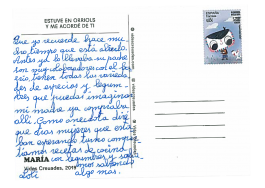 ESTUVE EN ORRIOLS
Y ME ACORDÉ DE TI
Que yo recuerde hace mu
cho tiempo que está abierto.
Antes ya lo llevaba su padre
son muy
tienen todas las varieda
des de especies y legum
bres que puedas imaginar
mi madre ya compraba
allí. Como anécdota diré
que dos mujeres que esta
ban esperando turno compar
tiamos recetas de cocina
con legumbres y
algo mas.
MARÍA
Vides Creuades, 2019